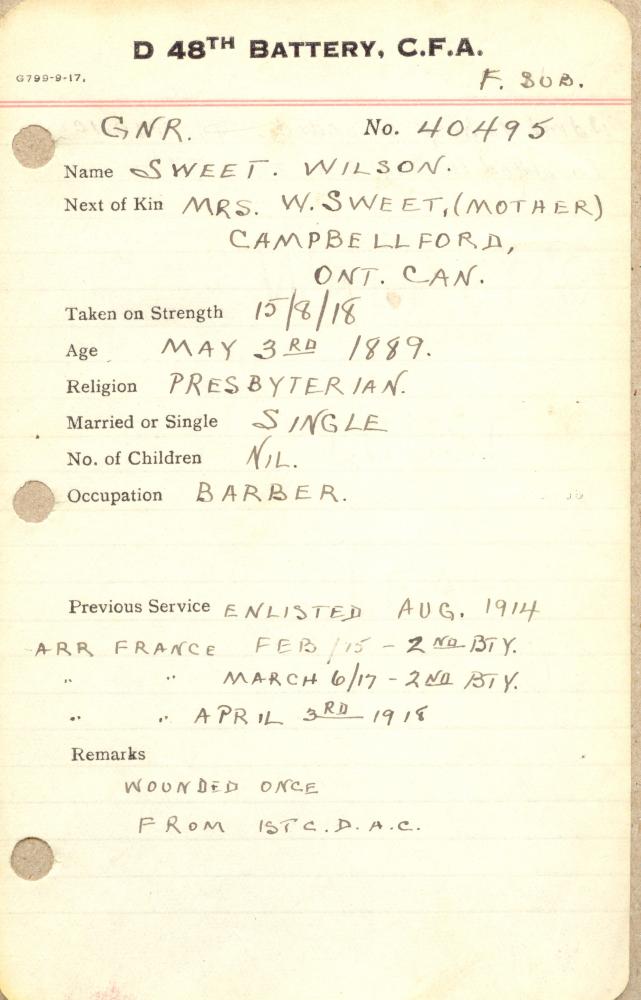 D 48TH BATTERY, C.F.A.
G799-9-17.
F. SUB.
GNR. No. 40495
Name SWEET. WILSON.
Next of Kin MRS. W. SWEET, (MOTHER)
CAMPBELLFORD,
ONT. CAN.
Taken on Strength 15/8/18
Age MAY 3RD 1889.
Religion PRESBYTERIAN.
Married or Single SINGLE
No. of Children NIL.
Occupation BARBER.
Previous Service ENLISTED AUG. 1914
ARR FRANCE FEB/15 - 2ND BTY.
" " MARCH 6/17 - 2ND BTY.
" " APRIL 3RD 1918
Remarks
WOUNDED ONCE
FROM 1ST C.D.A.C.